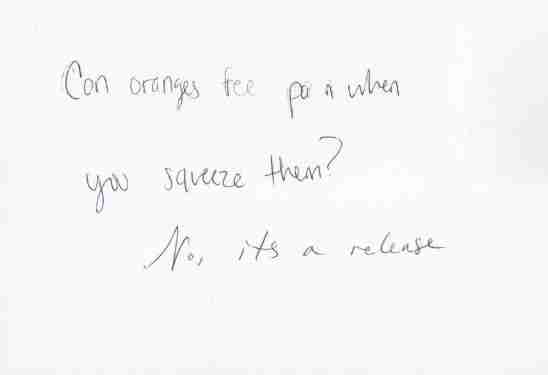 Can oranges fee pain when
you squeeze them?
No, its a release